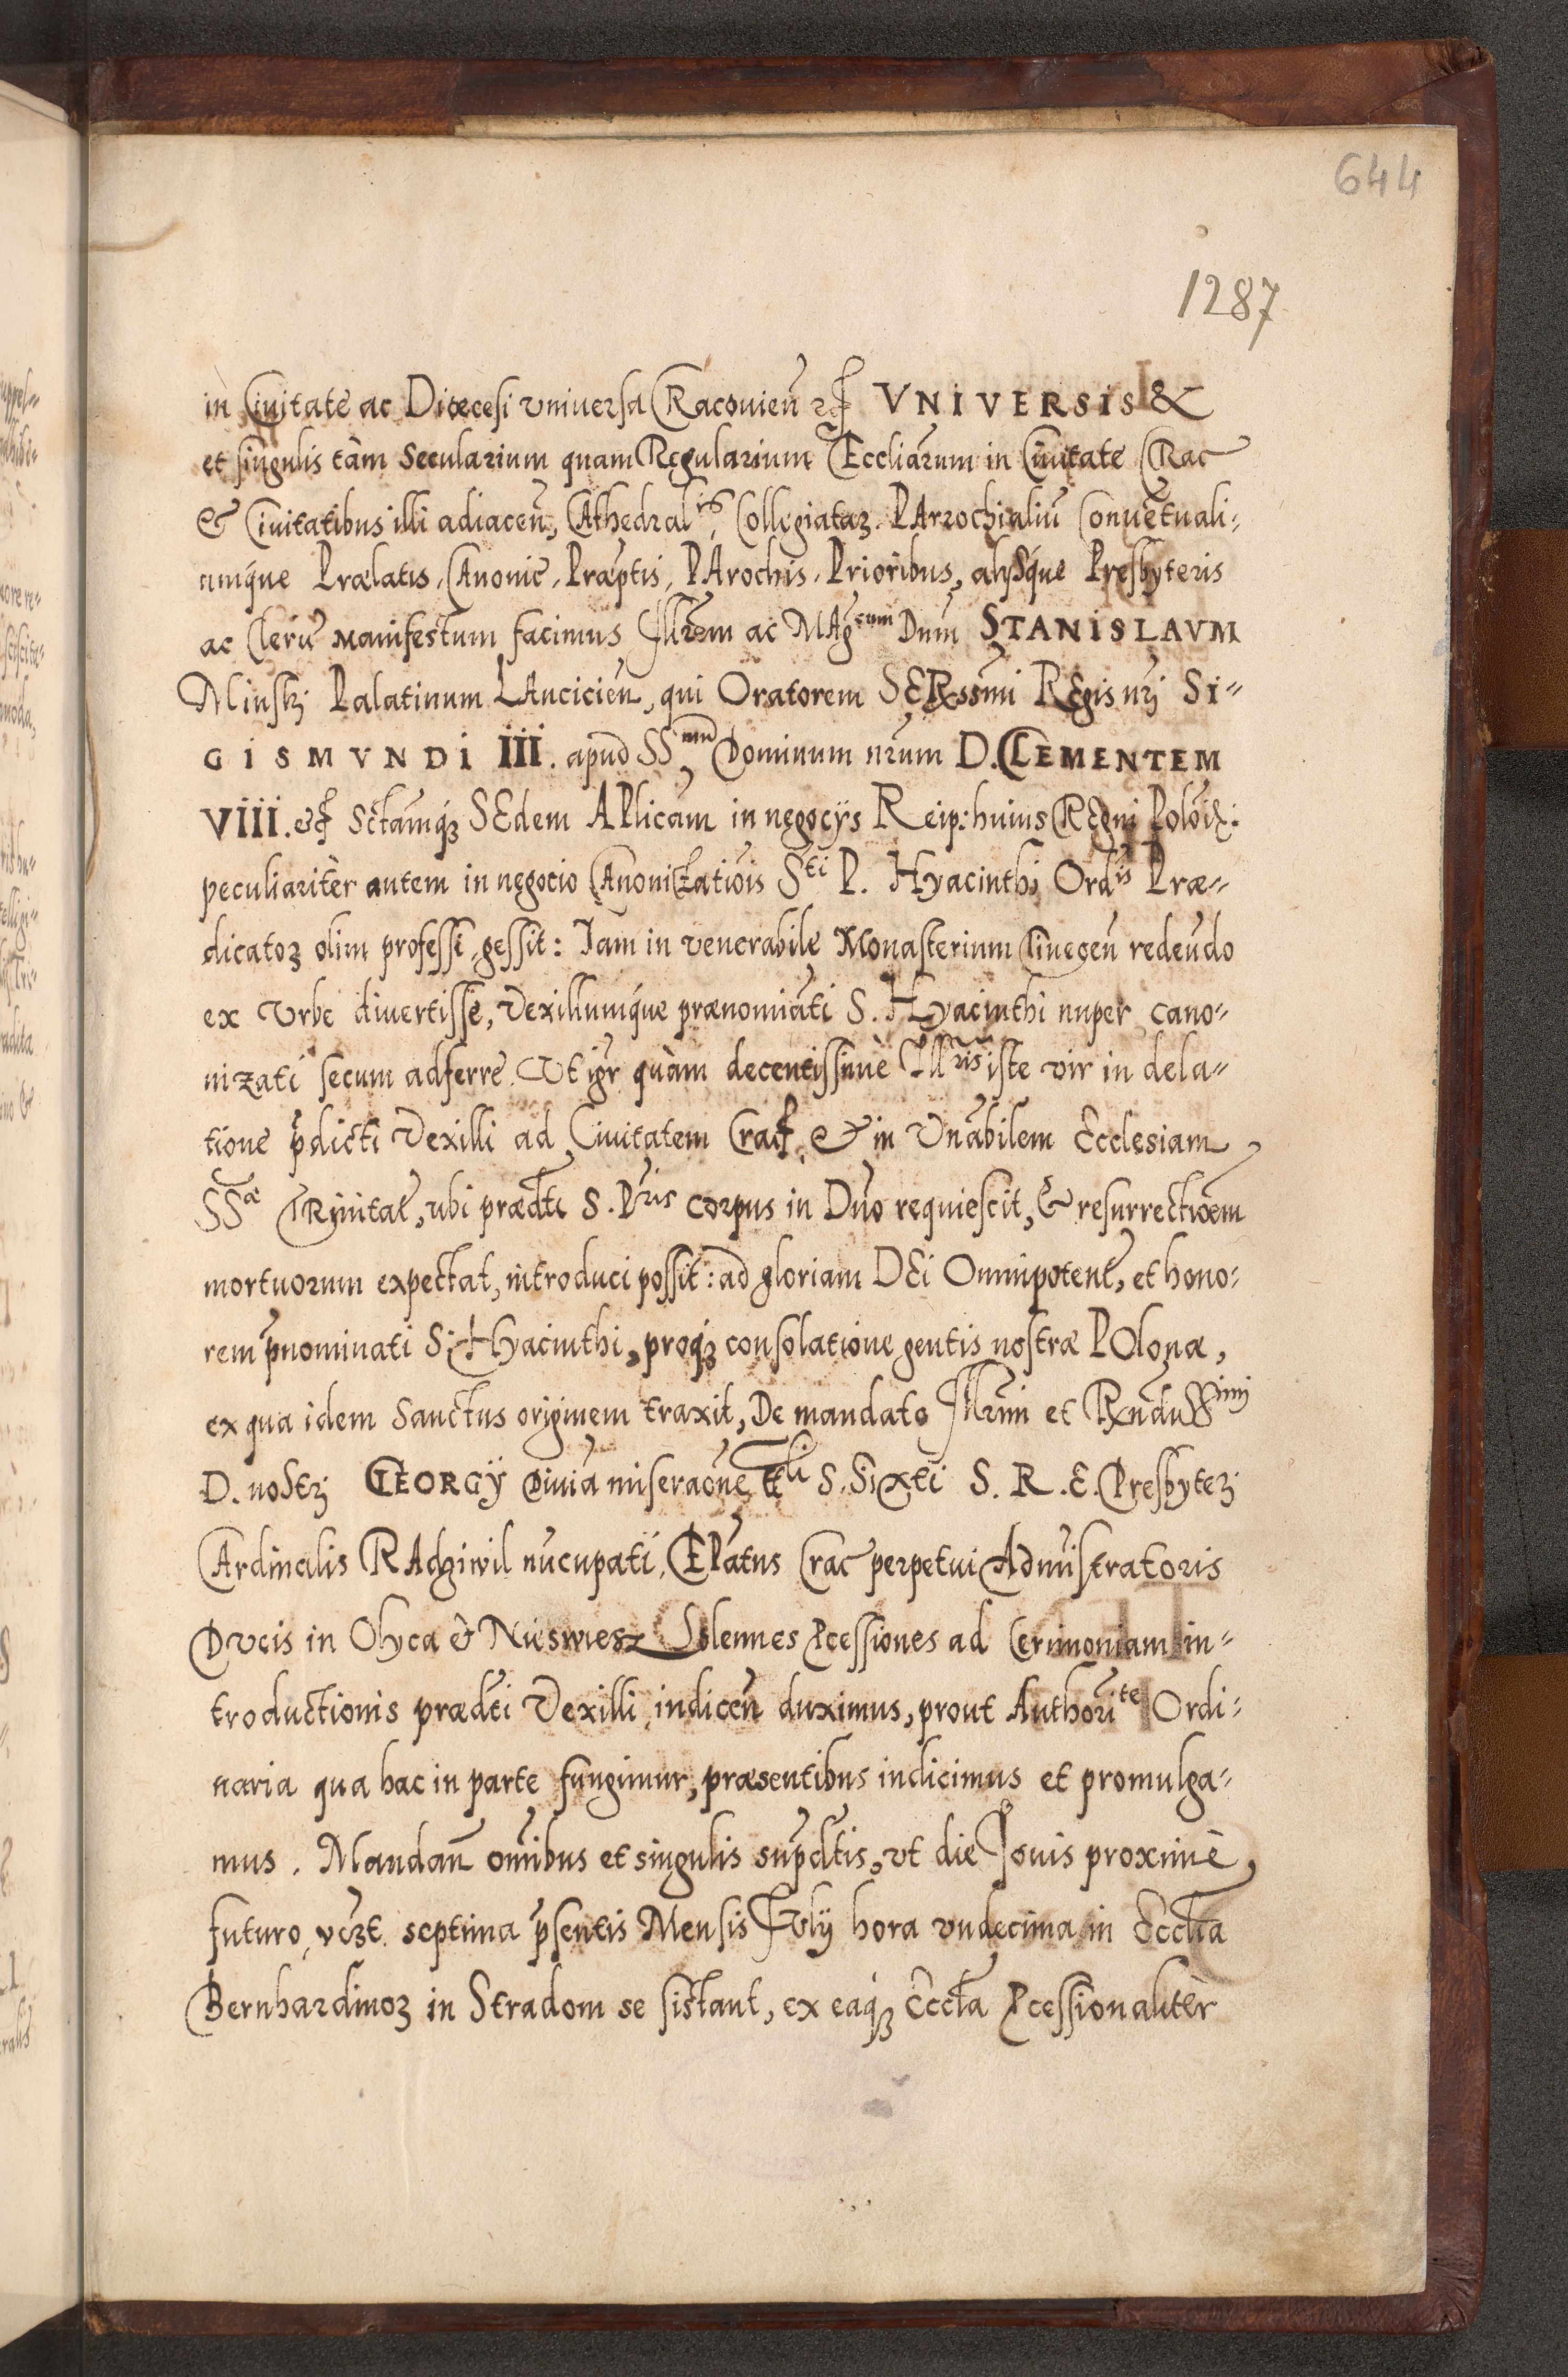 644
1287
in Ciuitate ac Diœcesi vniuersa Cracouień etc VNIVERSIS &
et singulis tàm Secularium quam Regularium Eccliārum in Ciuitate Crac
& Ciuitatibus illi adiaceń, Cathedral Collegiataꝝ. PArrochialiū Conuētuali⸗
umq́ue Prælatis, Canonic, Præptis, PArochis, Prioribus, alijsq́ue Presbyteris
ac Clerū Manifestum facimus Illrem ac MAgcum Dnm STANISLAVM
Minskj Palatinum LAncicień, qui Oratorem SERssmi REgis nrj SI⸗
GISMVNDI III. apud SSmū Dominum nrum D. CLEMENTEM
VIII. etc Sctāmqꝫ SEdem APlicām in negocijs Reip: huius REgni Poloiæ:
peculiaritèr autem in negocio Canonizatiōis Sti P. Hyacinthi Ordis Præ⸗
dicatoꝝ olim professi, gessit: Jam in venerabile Monasterium redeundo
ex Vrbe diuertisse, Vexillumq́ue prænomiāti S. Hyacinthi nuper cano⸗
nizati secum adferre. Vt igr quàm decentissimè Illris iste vir in dela⸗
tione p̄dicti Vexilli ad Ciuitatem Crac, & in Vnābilem Ecclesiam
SSæ TRinitat, ubi prædti S. Pris corpus in Dno requiescit, & resurrectiōem
mortuorum expectat, introduci possit: ad gloriam DEi Omnipotent, et hono⸗
rem p̄nominati S. Hyacinthi, proqꝫ consolatione gentis nostræ POlonæ,
ex qua idem Sanctus originem traxit, De mandato Illrmi et RxndıSSimj
D. nostrj GEORGIJ Diuiā miseraōne ttli S. Sixti S. R. E. Presbyterj
CArdinalis RAdziwil nūcupati, EPatus Crac perpetui Admistratoris
Ducis in Olyca & Nieswiesz Solennes Pcessiones ad Cerimoniam in⸗
troductionis prædti Vexilli, indiceń duximus, prout Authorite Ordi⸗
naria qua hac in parte fungimur, præsentibus indicimus et promulga⸗
mus. Mandań omibus et singulis supdtis, vt die Jouis proximè,
futuro, vczt. septima p̄sentis Mensis Julij hora vndecima in Ecclīa
Bernhardinoꝝ in Stradom se sistant, ex eaqꝫ Eccla Pcessionalitèr